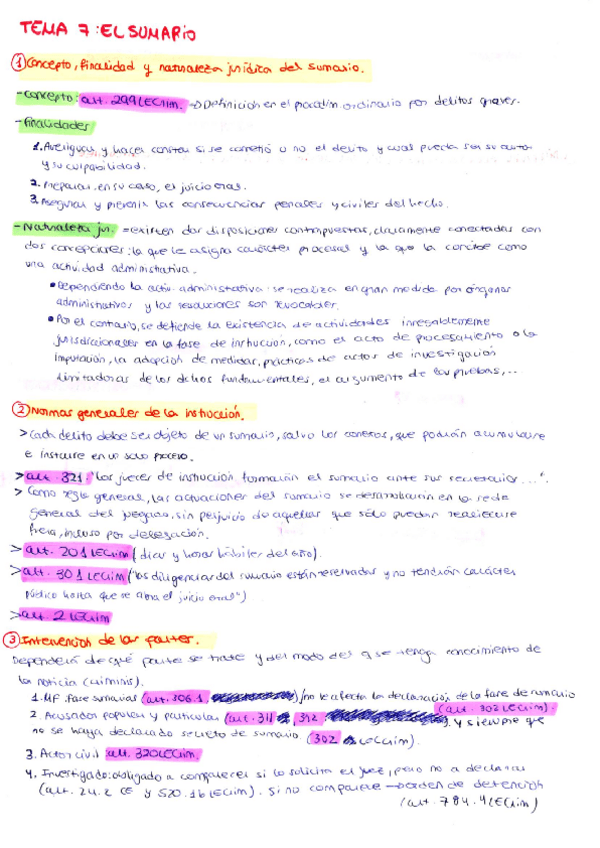 TEMA 7: EL SUMARIO
① Concepto, finalidad y naturaleza jurídica del sumario.
- Concepto: art. 299 LECrim. → Definición en el procdm. ordinario por delitos graves.
- Finalidades
1. Averiguar y hacer constar si se cometió o no el delito y cual pueda ser su autor
y su culpabilidad.
2. Preparar, en su caso, el juicio oral.
3. Asegurar y prevenir las consecuencias penales y civiles del hecho.
- Naturaleza jur. = existen dos disposiciones contrapuestas, claramente conectadas con
dos concepciones: la que le asigna carácter procesal y la que la concibe como
una actividad administrativa.
• Dependiendo la activ. administrativa: se realiza en gran medida por órganos
administrativos y las resoluciones son revocables.
• Por el contrario, se defiende la existencia de actividades innegablemente
jurisdiccionales en la fase de instrucción, como el acto de procesamiento o la
imputación, la adopción de medidas, prácticas de actos de investigación
limitadoras de los dchos fundamentales, el argumento de las pruebas,...
② Normas generales de la instrucción.
> Cada delito debe ser objeto de un sumario, salvo los conexos, que podrán acumularse
e instruirse en un solo proceso.
> art. 321: "Los jueces de instrucción formarán el sumario ante sus secretarios...".
> Como regla general, las actuaciones del sumario se desarrollarán en la sede
general del juzgado, sin perjuicio de aquellas que sólo puedan realizarse
fuera, incluso por delegación.
> art. 201 LECrim (días y horas hábiles del año).
> art. 301 LECrim ("las diligencias del sumario están reservadas y no tendrán carácter
público hasta que se abra el juicio oral")
> art. 2 LECrim
③ Intervención de las partes.
Dependerá de qué parte se trate y del modo del q se tenga conocimiento de
la noticia criminis.
1. MF. Fase sumarias (art. 306.1) / no le afecta la declaración de la fase de sumario
(art. 302 LECrim).
2. Acusador popular y particular (art. 311, 312) y siempre que
no se haya declarado secreto de sumario. (302 LECrim).
3. Actor civil: art. 320 LECrim.
4. Investigado: obligado a comparecer si lo solicita el juez, pero no a declarar
(art. 24.2 CE y 520.1b LECrim). Si no comparece → orden de detención
(art. 784.4 LECrim)